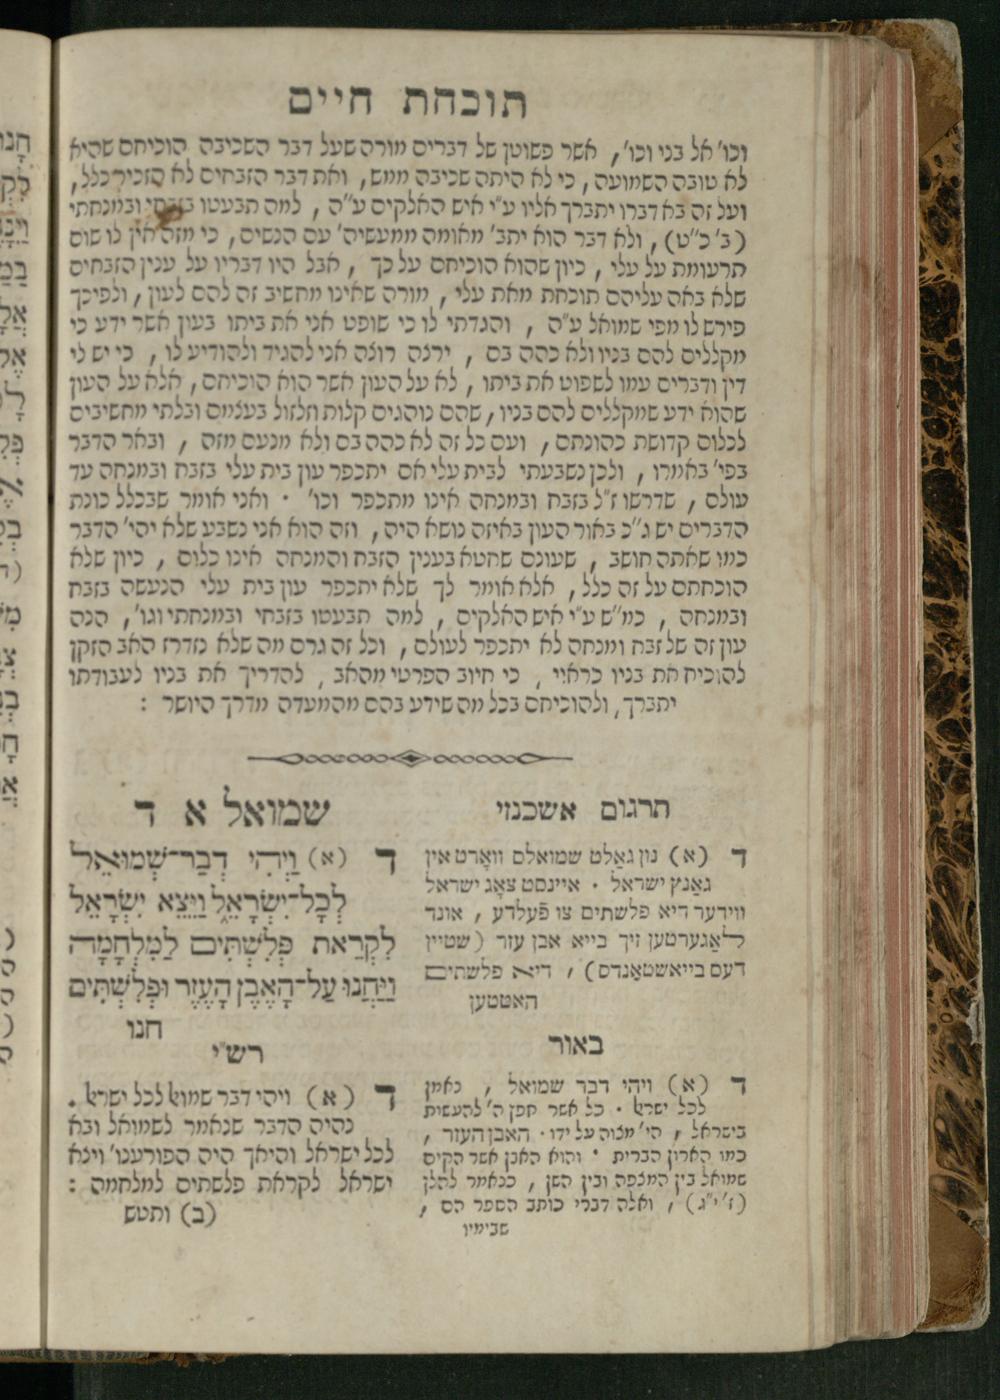 תוכחת חיים
וכו' אל בני וכו', אשר פשוטן של דברים מורה שעל דבר השכיבה הוכיחם שהיא
לא טובה השמועה, כי לא היתה שכיבה ממש, ואת דבר הזבחים לא הזכיר כלל,
ועל זה בא דברו יתברך אליו ע"י איש האלקים ע"ה, למה תבעטו בזבחי ובמנחתי
(ב' כ"ט), ולא דבר הוא יתב' מאומה ממעשיה' עם הנשים, כי מזה אין לו שום
תרעומת על עלי, כיון שהוא הוכיחם על כך, אבל היו דבריו על ענין הזבחים
שלא באה עליהם תוכחת מאת עלי, מורה שאינו מחשיב זה להם לעון, ולפיכך
פירש לו מפי שמואל ע"ה, והגדתי לו כי שופט אני את ביתו בעון אשר ידע כי
מקללים להם בניו ולא כהה בם, ירצה רוצה אני להגיד ולהודיע לו, כי יש לי
דין ודברים עמו לשפוט את ביתו, לא על העון אשר הוא הוכיחם, אלא על העון
שהוא ידע שמקללים להם בניו, שהם נוהגים קלות וזלזול בעצמם ובלתי מחשיבים
לכלום קדושת כהונתם, ועם כל זה לא כהה בם ולא מנעם מזה, ובאר הדבר
בפי' באמרו, ולכן נשבעתי לבית עלי אם יתכפר עון בית עלי בזבח ובמנחה עד
עולם, שדרשו ז"ל בזבח ובמנחה אינו מתכפר וכו' · ואני אומר שבכלל כונת
הדברים יש ג"כ באור העון באיזה נושא היה, וזה הוא אני נשבע שלא יהי' הדבר
כמו שאתה חושב, שעונם שחטא בענין הזבח והמנחה אינו כלום, כיון שלא
הוכחתם על זה כלל, אלא אומר לך שלא יתכפר עון בית עלי הנעשה בזבח
ובמנחה, כמ"ש ע"י איש האלקים, למה תבעטו בזבחי ובמנחתי וגו', הנה
עון זה של זבח ומנחה לא יתכפר לעולם, וכל זה גרם מה שלא נזדרז האב הזקן
להוכיח את בניו כראוי, כי חיוב הפרטי מהאב, להדריך את בניו לעבודתו
יתברך, ולהוכיחם בכל מה שידע בהם מהמעדה מדרך היושר :
שמואל א ד
ד (א) וַיְהִי דְבַר־שְׁמוּאֵל
לְכָל־יִשְׂרָאֵל וַיֵּצֵא יִשְׂרָאֵל
לִקְרַאת פְּלִשְׁתִּים לַמִּלְחָמָה
וַיַּחֲנוּ עַל־הָאֶבֶן הָעֶזֶר וּפְלִשְׁתִּים
חנו
רש"י
ד (א) ויהי דבר שמואל לכל ישראל .
נהיה הדבר שנאמר לשמואל ובא
לכל ישראל והיאך היה הפורענו' ויצא
ישראל לקראת פלשתים למלחמה :
(ב) ותטש
תרגום אשכנזי
ד (א) נון גאַלט שמואלס וואָרט אין
גאַנץ ישראל · איינסט צאָג ישראל
ווידער דיא פלשתים צו פֿעלדע, אונד
לאַגערטען זיך בייא אבן עזר (שטיין
דעס בייאשטאַנדס), דיא פלשתים
האטטען
באור
ד (א) ויהי דבר שמואל, נאמן
לכל ישראל · כל אשר חפץ ה' להעשות
בישראל, הי' מצוה על ידו · האבן העזר,
כמו הארון הברית · והוא האבן אשר הקים
שמואל בין המצפה ובין השן, כנאמר להלן
(ז' י"ג), ואלה דברי כותב הספר הם,
שבימיו